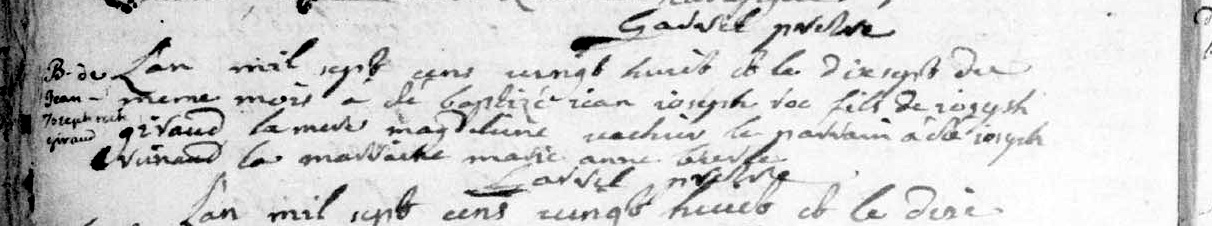 prestre
B. de
Jean
Joseph roch
giraud
Lan mil sept cens vingt huit et le dixsept du
meme mois a été baptizé jean joseph roc fils de joseph
giraud la mere magdeleine le parrain a été joseph
la marraine marie anne
prestre
Lan mil sept cens vingt huit et le dix